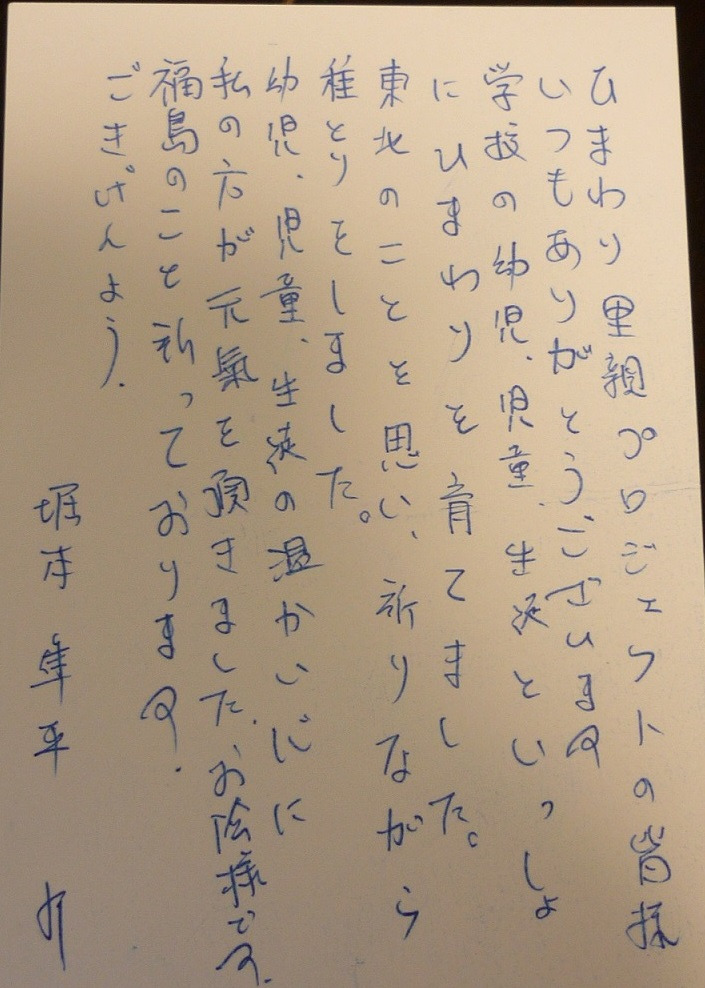 ひまわり里親プロジェクトの皆様
いつもありがとうございます
学校の幼児、児童、生徒といっしょ
にひまわりを育てました。
東北のことを思い、祈りながら
種とりをしました。
幼児、児童、生徒の温かい心に
私の方が元氣を頂きました.お陰様です.
福島のこと祈っております.
ごきげんよう.
堀本 隼平